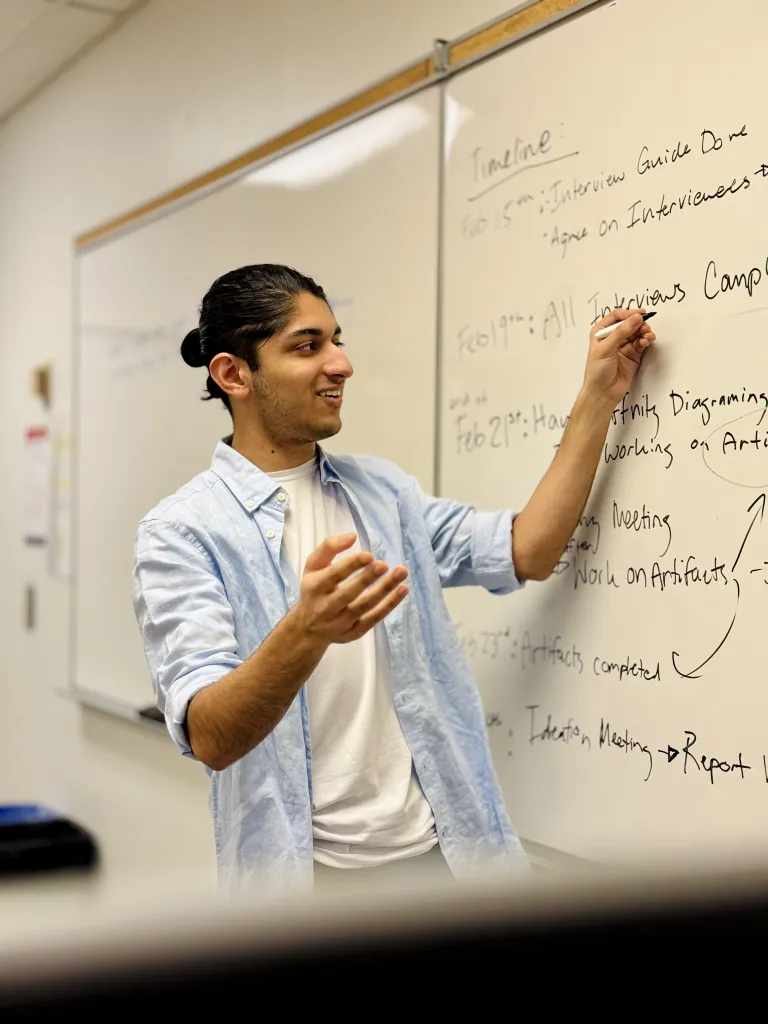 Timeline:
Feb 15th: Interview Guide Done
Agree on Interviewees
Feb 19th: All Interviews Compl
end of
Feb 21st: Hav ffinity Diagraming
working on Arti
Meeting
after
Work on Artifacts
Feb 23rd: Artifacts completed
Ideation Meeting → Report